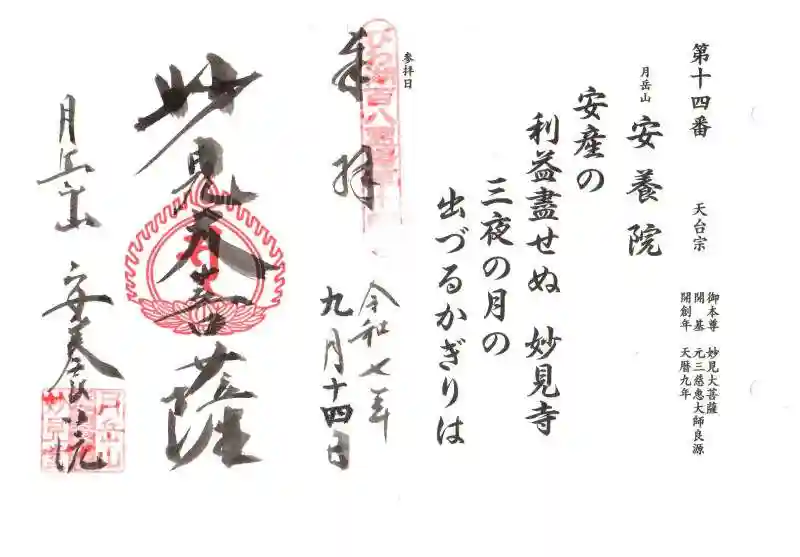 第十四番 天台宗
御本尊 妙見大菩薩
開基 元三慈惠大師良源
開創年 天暦九年
月岳山 安養院
安産の
利益盡せぬ 妙見寺
三夜の月の
出づるかぎりは
参拝日
奉拝
びわ湖百八霊場
令和七年
九月十四日
妙見大菩薩
月岳山 安養院
月岳山
妙見寺